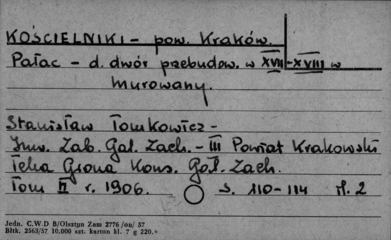 KOŚCIELNIKI - pow. Kraków.
Pałac - d. dwór przebudow. w XVII-XVIII w
murowany.
Stanisław Tomkowicz -
Inw. Zab. Gal. Zach. - III Powiat Krakowski
Teka Grona Kons. Gal. Zach.
Tom II r. 1906. s. 110-114 il. 2
Jedn. C.W.D B/Olsztyn Zam 2776/on/ 57
Bltk. 2563/57 10.000 szt. karton kl. 7 g 220.